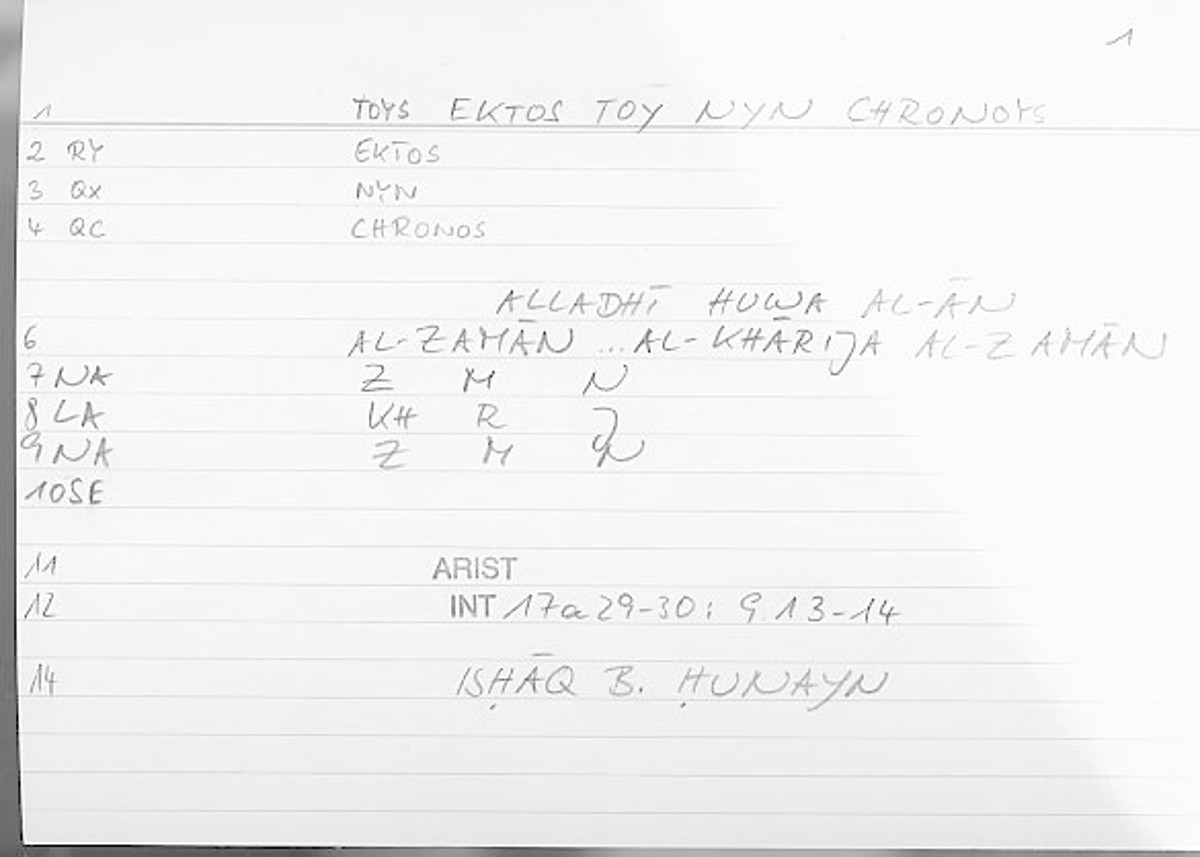 1
1 TOYS EKTOS TOY NYN CHRONOYS
2 RY EKTOS
3 QX NYN
4 QC CHRONOS
ALLADHĪ HUWA AL-ĀN
6 AL-ZAMĀN ...AL-KHĀRIJA AL-ZAMĀN
7 NA Z M N
8 LA KH R J
9 NA Z M N
10 SE
11 ARIST
12 INT 17a 29-30; 9.13-14
14 ISḤĀQ B. ḤUNAYN